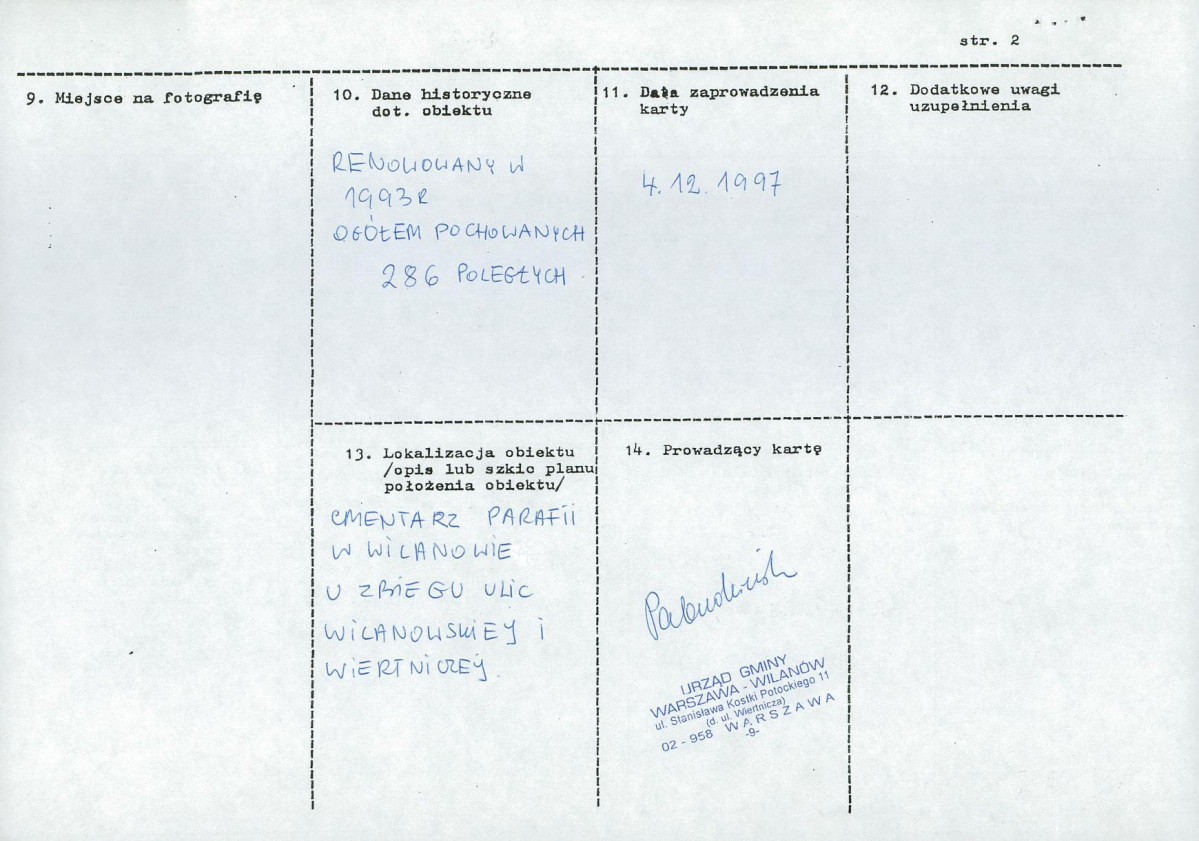 str. 2
9. Miejsce na fotografię
10. Dane historyczne
dot. obiektu
RENOWOWANY W
1993R
OGÓŁEM POCHOWANYCH
286 POLEGŁYCH
11. Data zaprowadzenia
karty
4.12.1997
12. Dodatkowe uwagi
uzupełnienia
13. Lokalizacja obiektu
/opis lub szkic planu
położenia obiektu/
CMENTARZ PARAFII
W WILANOWIE
U ZBIEGU ULIC
WILANOWSKIEJ I
WIERTNICZEJ
14. Prowadzący kartę
URZĄD GMINY
WARSZAWA - WILANÓW
ul. Stanisława Kostki Potockiego 11
(d. ul. Wiertnicza)
02 - 958 WARSZAWA
-9-